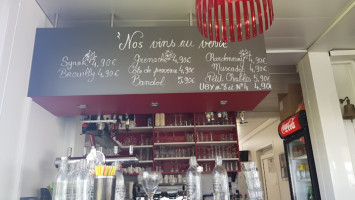 Nos vins au verre
Syrah 4,90€
Brouilly 4,90€
Grenache 4,90€
Côte de provence 4,90€
Bandol 5,90€
Chardonnay 4,90€
Muscadet 4,90€
Petit Chablis 5,90€
4,90
Coca-Cola